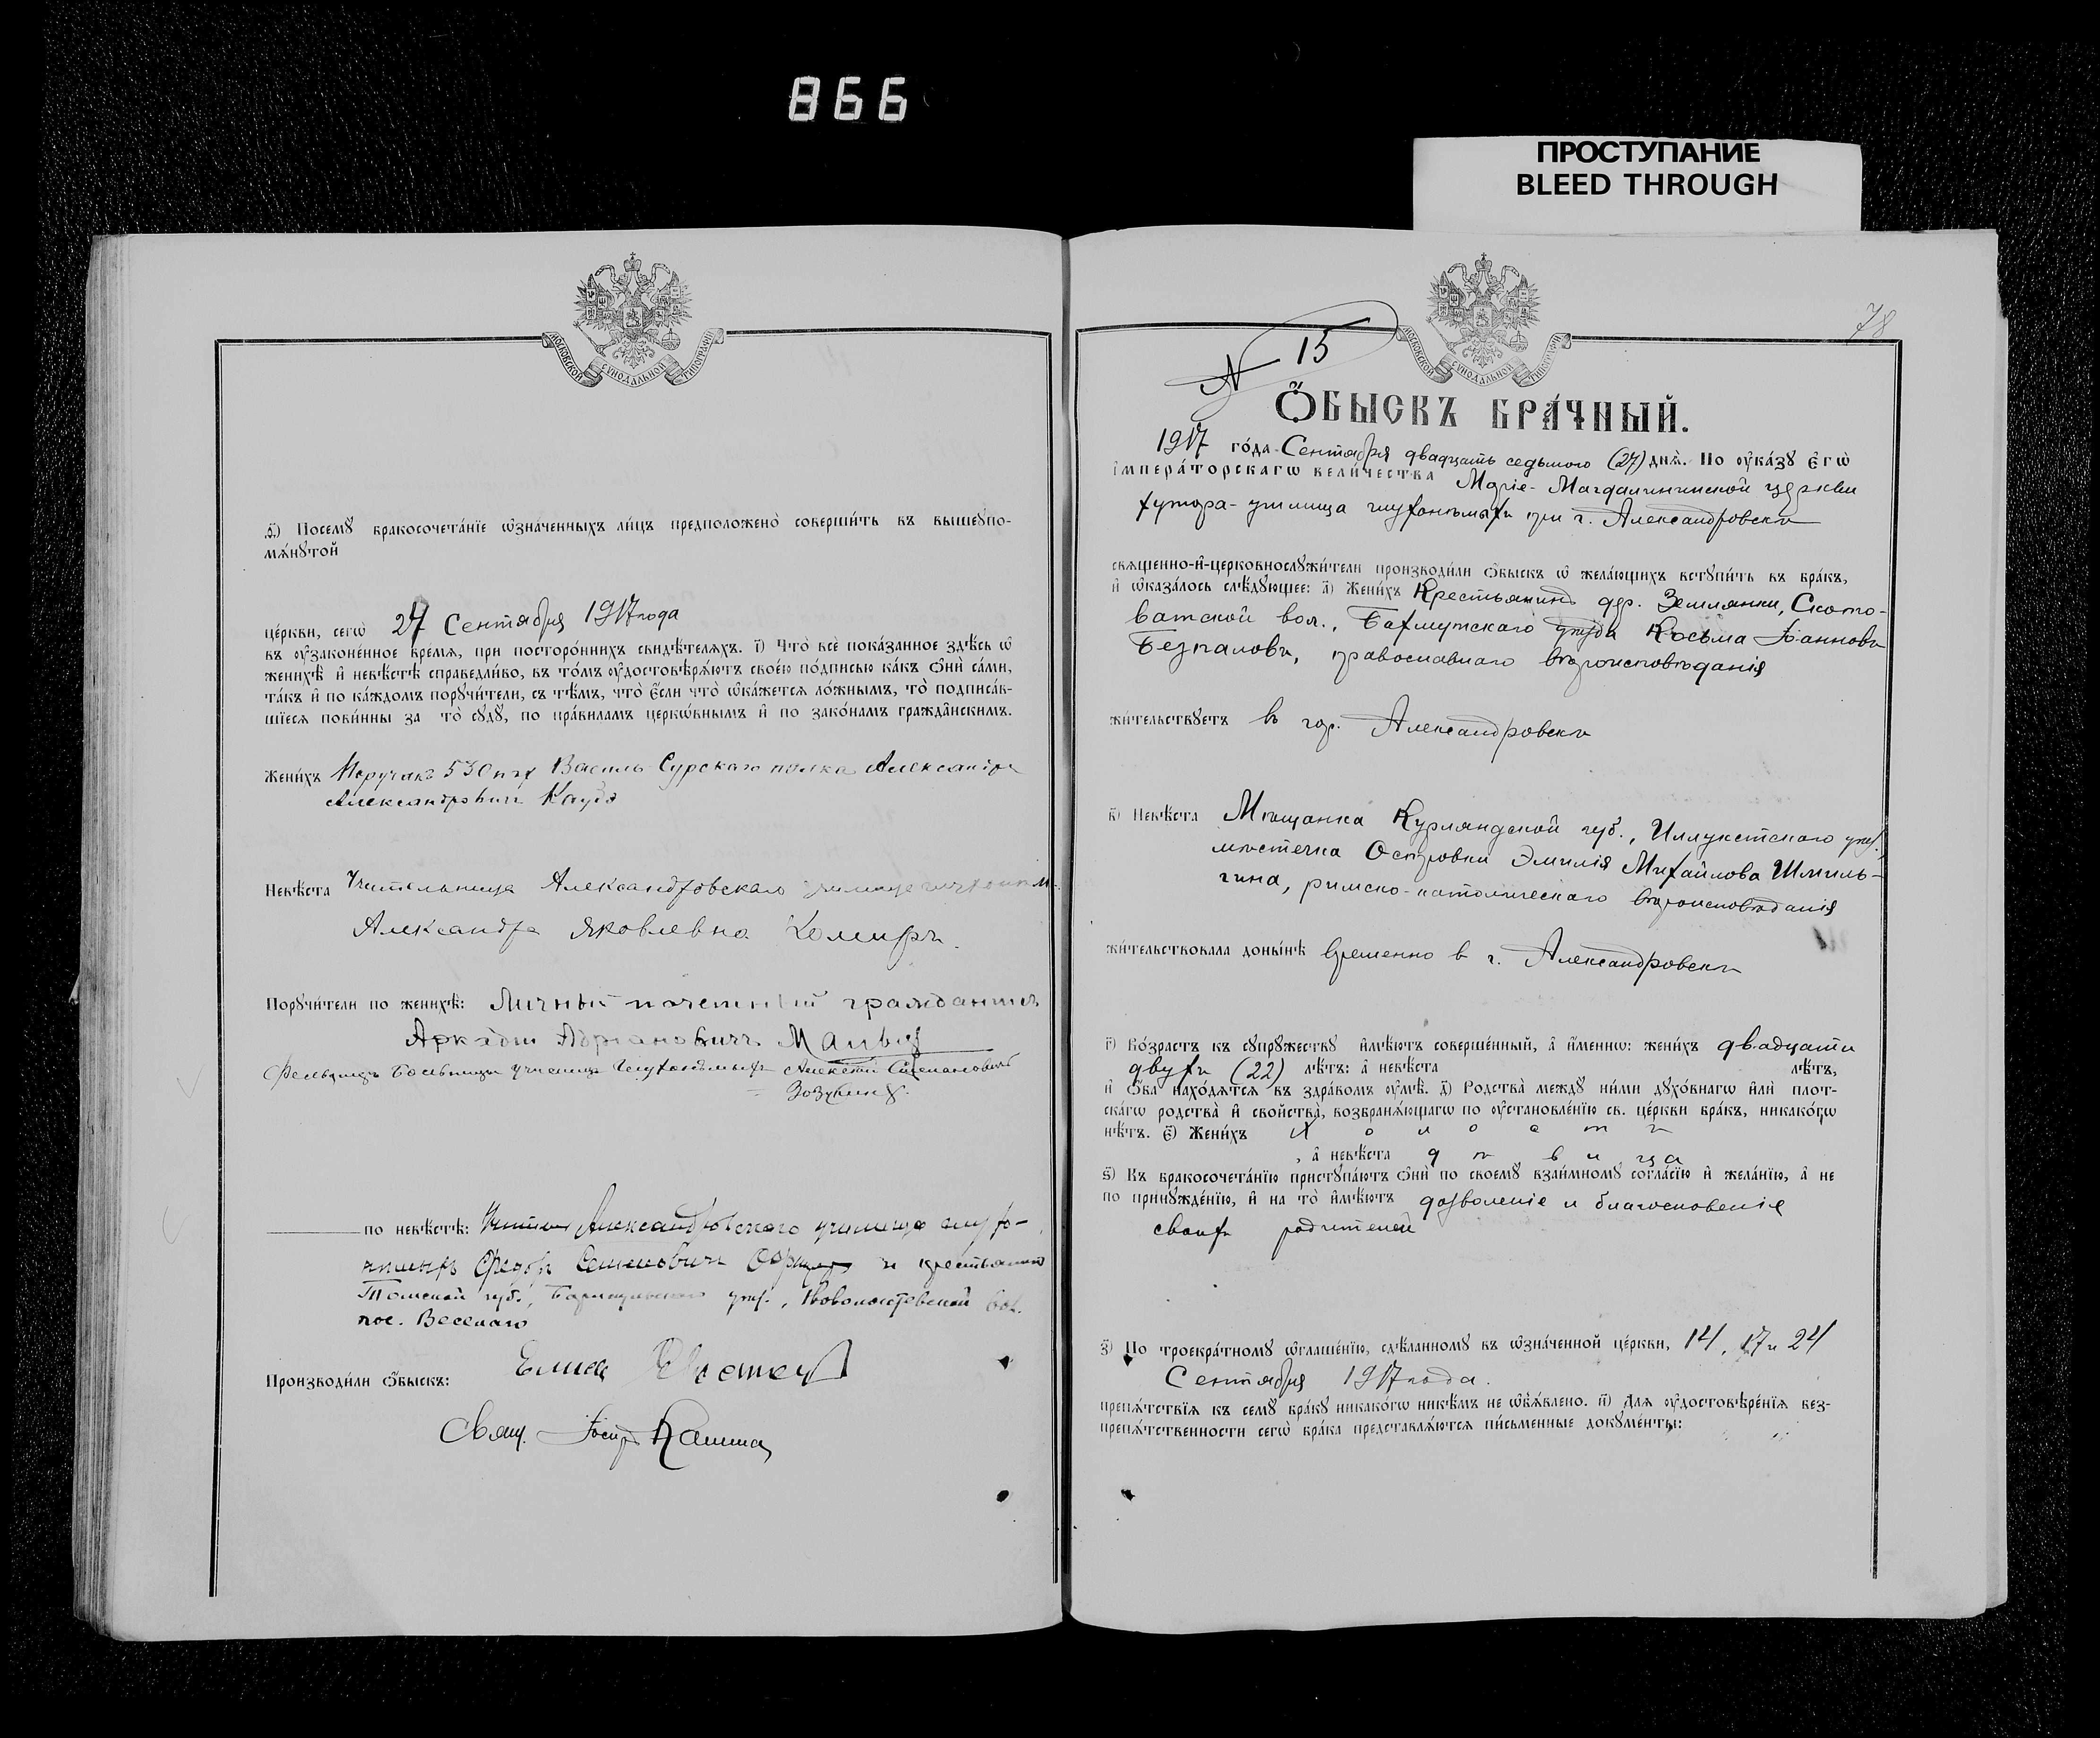 866
ПРОСТУПАНИЕ
BLEED THROUGH
МОСКОВСКОЙ СУНОДАЛЬНОЙ ТИПОГРАФІИ
ѳ҃) Посемꙋ бракосочета́нїе ѡзна́ченныхъ ли́цъ предположено̀ соверши́ть въ вышеꙋпо-
мѧ́нꙋтой
це́ркви, сегѡ̀ 27 Сентября 1917 года
въ ᲂу҆зако́ненное вре́мѧ, при посторо́ннихъ свидѣ́телѧхъ. і҃) Что̀ всѐ пока́занное здѣ́сь ѡ҆
женихѣ̀ и҆ невѣ́стѣ справедли́во, въ то́мъ ᲂу҆достовѣрѧ́ютъ свое́ю по́дписью ка́къ ѻ҆нѝ са́ми,
та́къ и҆ по ка́ждомъ порꙋчи́тели, съ тѣ́мъ, что̀ є҆́сли что̀ ѡ҆ка́жетсѧ ло́жнымъ, то̀ подписа́в-
шїесѧ пови́нны за то̀ сꙋдꙋ̀, по пра́виламъ церкѡ́внымъ и҆ по зако́намъ гражда́нскимъ.
Жени́хъ Поручикъ 530 пѣх Василь-Сурскаго полка Александръ
Александровичъ
Невѣ́ста Учительница Александровскаго училища глухонѣм.
Александра Яковлевна
Порꙋчи́тели по женихѣ̀: Личный почетный гражданинъ
Аркадій Адріановичъ
Фельдшеръ больницы училища Глухонѣмыхъ Алексѣй Степановичъ
по невѣ́стѣ: Александровскаго училища глухо-
нѣмыхъ Федоръ Семеновичъ и крестьянинъ
Томской губ., Барнаульскаго уѣз.,
пос. Веселаго
Производи́ли ѻ҆́быскъ:
Свящ. Іосифъ
78
N 15
МОСКОВСКОЙ СУНОДАЛЬНОЙ ТИПОГРАФІИ
Ѻ҆́БЫСКЪ БРА́ЧНЫЙ.
1917 го́да Сентября двадцать седьмого (27) днѧ̀. По ᲂу҆ка́зꙋ є҆гѡ̀
і҆мпера́торскагѡ вели́чества Маріе-Магдалининской церкви
хутора-училища глухонѣмыхъ при г. Александровскѣ
свѧще́нно-и҆-церковнослꙋжи́тели производи́ли ѻ҆́быскъ ѡ҆ жела́ющихъ встꙋпи́ть въ бра́къ,
и҆ ѡ҆каза́лось слѣ́дꙋющее: а҃) Жени́хъ Крестьянинъ дер. Землянки, Ското-
ватской вол., Бахмутскаго уѣзда Косьма Іоанновъ
Безпаловъ, православнаго вѣроисповѣданія
жи́тельствꙋетъ въ гор. Александровскѣ
в҃) Невѣ́ста Мѣщанка Курляндской губ., Иллукстскаго уѣз.,
мѣстечка Островки Эмилія Михайлова Шмиль-
гина, римско-католическаго вѣроисповѣданія
жи́тельствовала донынѣ̀ временно въ г. Александровскѣ
г҃) Во́зрастъ къ сꙋпрꙋ́жествꙋ и҆мѣ́ютъ соверше́нный, а҆ и҆́меннѡ: жени́хъ двадцати
двухъ (22) лѣ́тъ: а҆ невѣ́ста лѣ́тъ,
и҆ ѻ҆́ба нахо́дѧтсѧ въ здра́вомъ ᲂу҆мѣ̀. д҃) Родства̀ междꙋ ни́ми дꙋхо́внагѡ и҆лѝ плот-
ска́гѡ родства̀ и҆ сво́йства, возбранѧ́ющагѡ по ᲂу҆становле́нїю св. це́ркви бра́къ, никако́гѡ
нѣ́тъ. є҃) Жени́хъ холостъ
, а҆ невѣ́ста дѣвица
ѕ҃) Къ бракосочета́нїю пристꙋпа́ютъ ѻ҆нѝ по своемꙋ̀ взаи́мномꙋ согла́сїю и҆ жела́нїю, а҆ не
по принꙋжде́нїю, и҆ на то̀ и҆мѣ́ютъ дозволеніе и благословеніе
своихъ родителей
з҃) По троекра́тномꙋ ѡ҆глаше́нїю, сдѣ́ланномꙋ въ ѡ҆зна́ченной це́ркви, 14, 17 и 24
Сентября 1917 года.
препѧ́тствїѧ къ семꙋ̀ бра́кꙋ никако́гѡ никѣ́мъ не ѡ҆б̾ѧ́влено. и҃) Длѧ ᲂу҆достовѣре́нїѧ без-
препѧ́тственности сегѡ̀ бра́ка представлѧ́ютсѧ пи́сьменные докꙋме́нты: